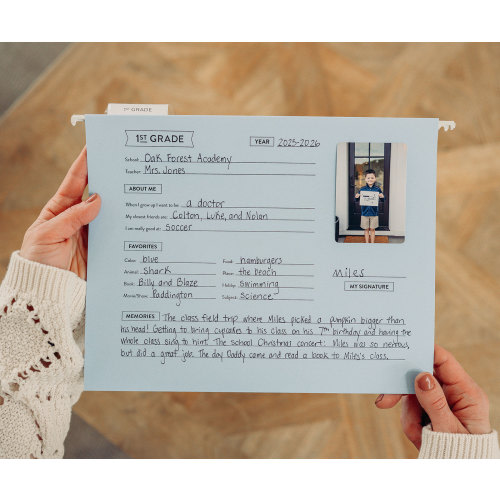 1ST GRADE
1ST GRADE
YEAR 2025-2026
School: Oak Forest Academy
Teacher: Mrs. Jones
ABOUT ME
When I grow up I want to be: a doctor
My closest friends are: Colton, Luke, and Nolan
I am really good at: soccer
FAVORITES
Color: blue
Food: hamburgers
Animal: shark
Place: the beach
Book: Billy and Blaze
Hobby: Swimming
Movie/Show: Paddington
Subject: Science
miles
MY SIGNATURE
MEMORIES The class field trip where Miles picked a pumpkin bigger than
his head! Getting to bring cupcakes to his class on his 7th birthday and having the
whole class sing to him! The school Christmas concert: Miles was so nervous,
but did a great job. The day Daddy came and read a book to Miles's class.